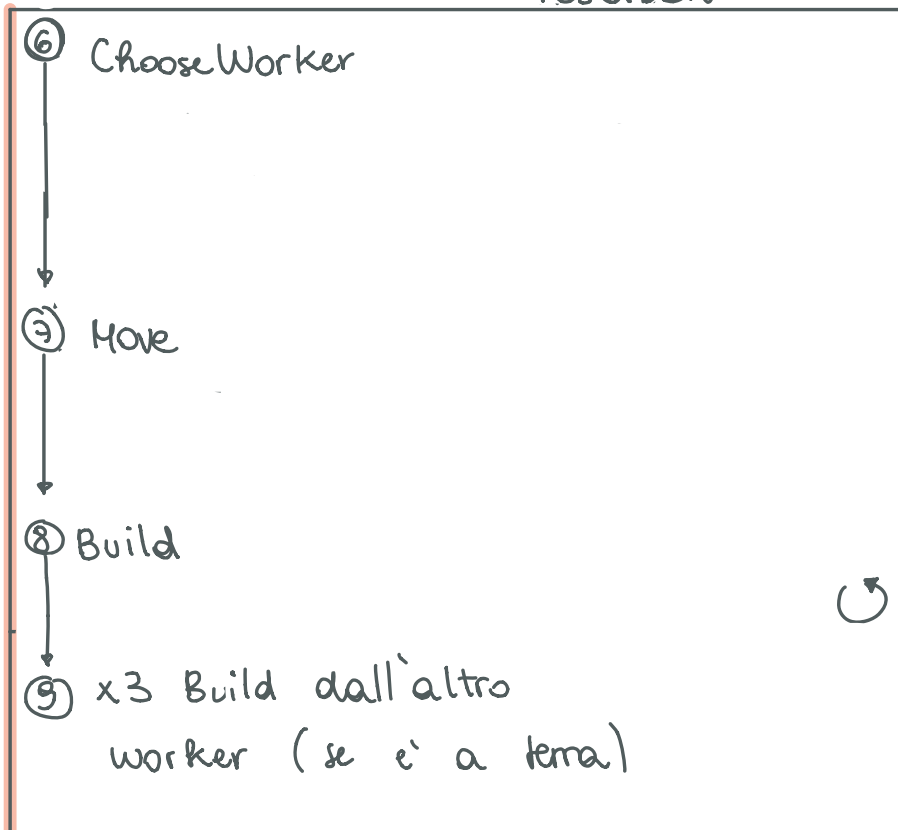 6 ChooseWorker
7 Move
8 Build
9 x3 Build dall'altro
worker (se e' a terra)